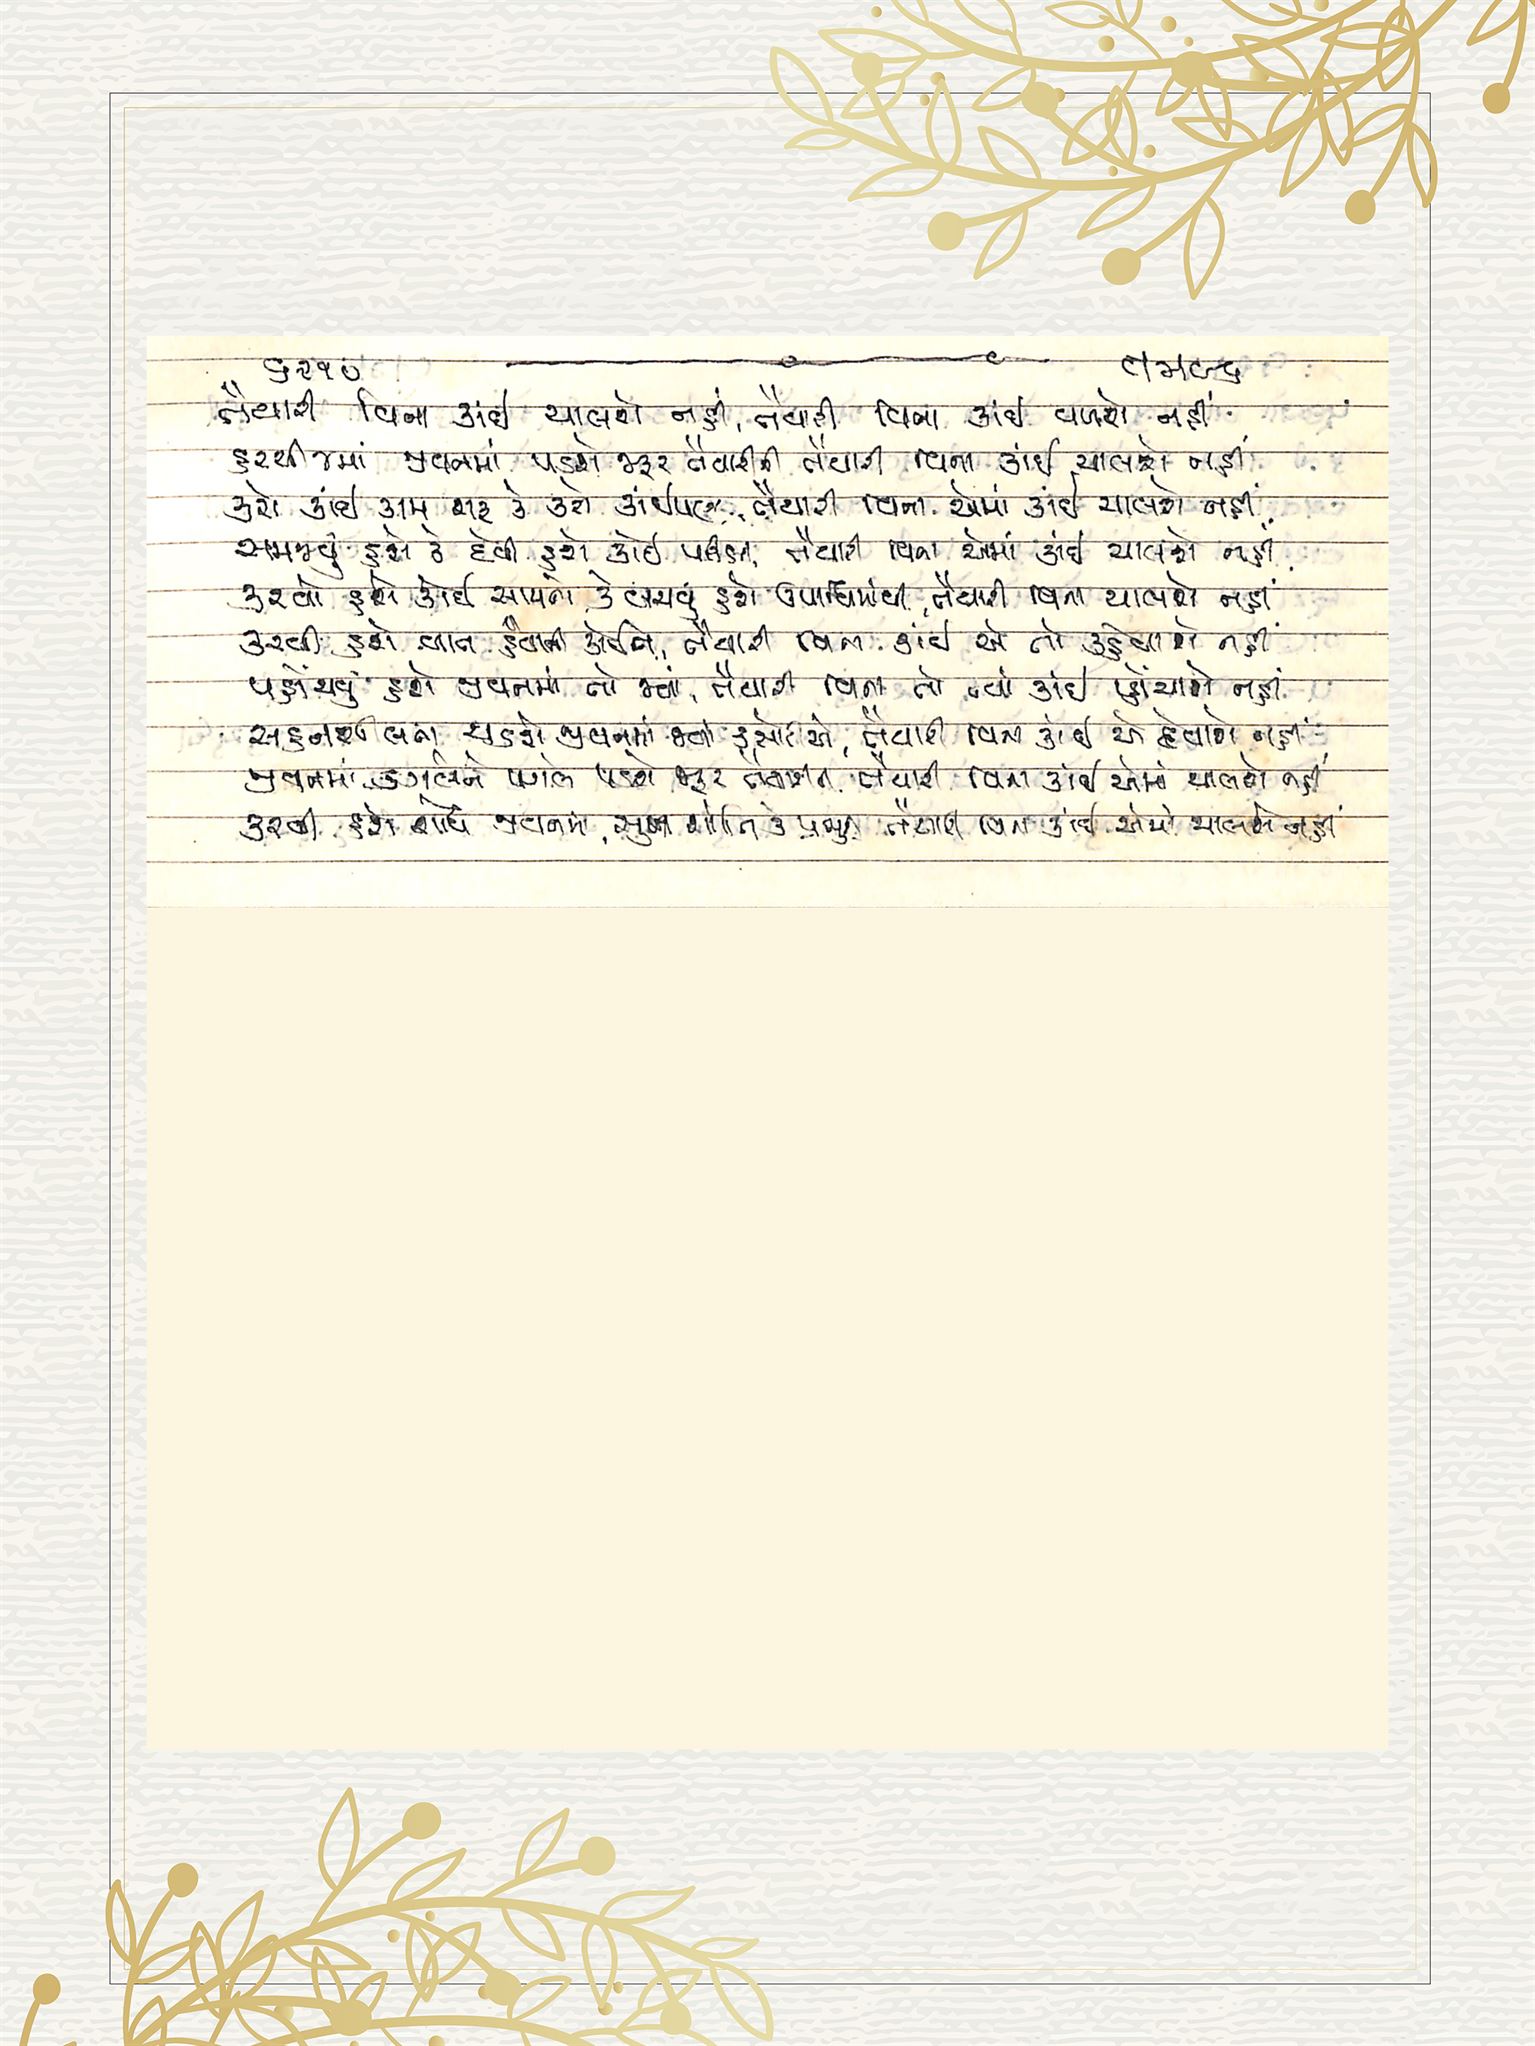 તૈયારી વિના કાંઈ ચાલશે નહીં, તૈયારી વિના કાંઈ વળશે નહીં
હરચીજમાં જીવનમાં પડશે જરૂર તૈયારીની તૈયારી વિના કાંઈ ચાલશે નહીં
કરશો કાંઈ કામ શરૂ કે કરશો કાંઈપણ, તૈયારી વિના એમાં કાંઈ ચાલશે નહીં
સમજવું હશે કે દેવી હશે કોઈ પરીક્ષા, તૈયારી વિના એમાં કાંઈ ચાલશે નહીં
કરવો હશે કોઈ સામનો કે બચવું હશે ઉપાધિમાંથી, તૈયારી વિના ચાલશે નહીં
કરવી હશે વાત હૈયાની કોઈને, તૈયારી વિના કાંઈ એ તો કહેવાશે નહીં
પહોંચવું હશે જીવનમાં તો જ્યાં, તૈયારી વિના તો ત્યાં કાંઈ પહોંચાશે નહીં
સહનશીલતા ચડશે જીવનમાં જ્યાં કસોટીએ, તૈયારી વિના કાંઈ એ દેવાશે નહીં
જીવનમાં ડગલેને પગલે પડશે જરૂર તૈયારીની તૈયારી વિના કાંઈ એમાં ચાલશે નહીં
કરવી હશે જીવનમાં, સુખ શાંતિ કે પ્રભુની તૈયારી વિના કાંઈ એમાં ચાલશે નહીં